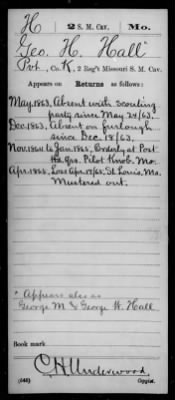 H 2 S. M. Cav. Mo.
Geo. H. Hall*
Pvt., Co. K, 2 Reg't Missouri S. M. Cav.
Appears on Returns as follows:
May 1863, Absent with Scouting
party since May 24/63.
Dec. 1863, Absent on furlough
since Dec. 18/63.
Nov. 1864 to Jan. 1865, Orderly at Post
Hd. Qrs. Pilot Knob, Mo.
Apr. 1865, Loss Apr. 17/65, St. Louis, Mo.
Mustered out.
* Appears also as
George M. & George W. Hall
Book mark
C. H. Underwood,
(546) Copyist.